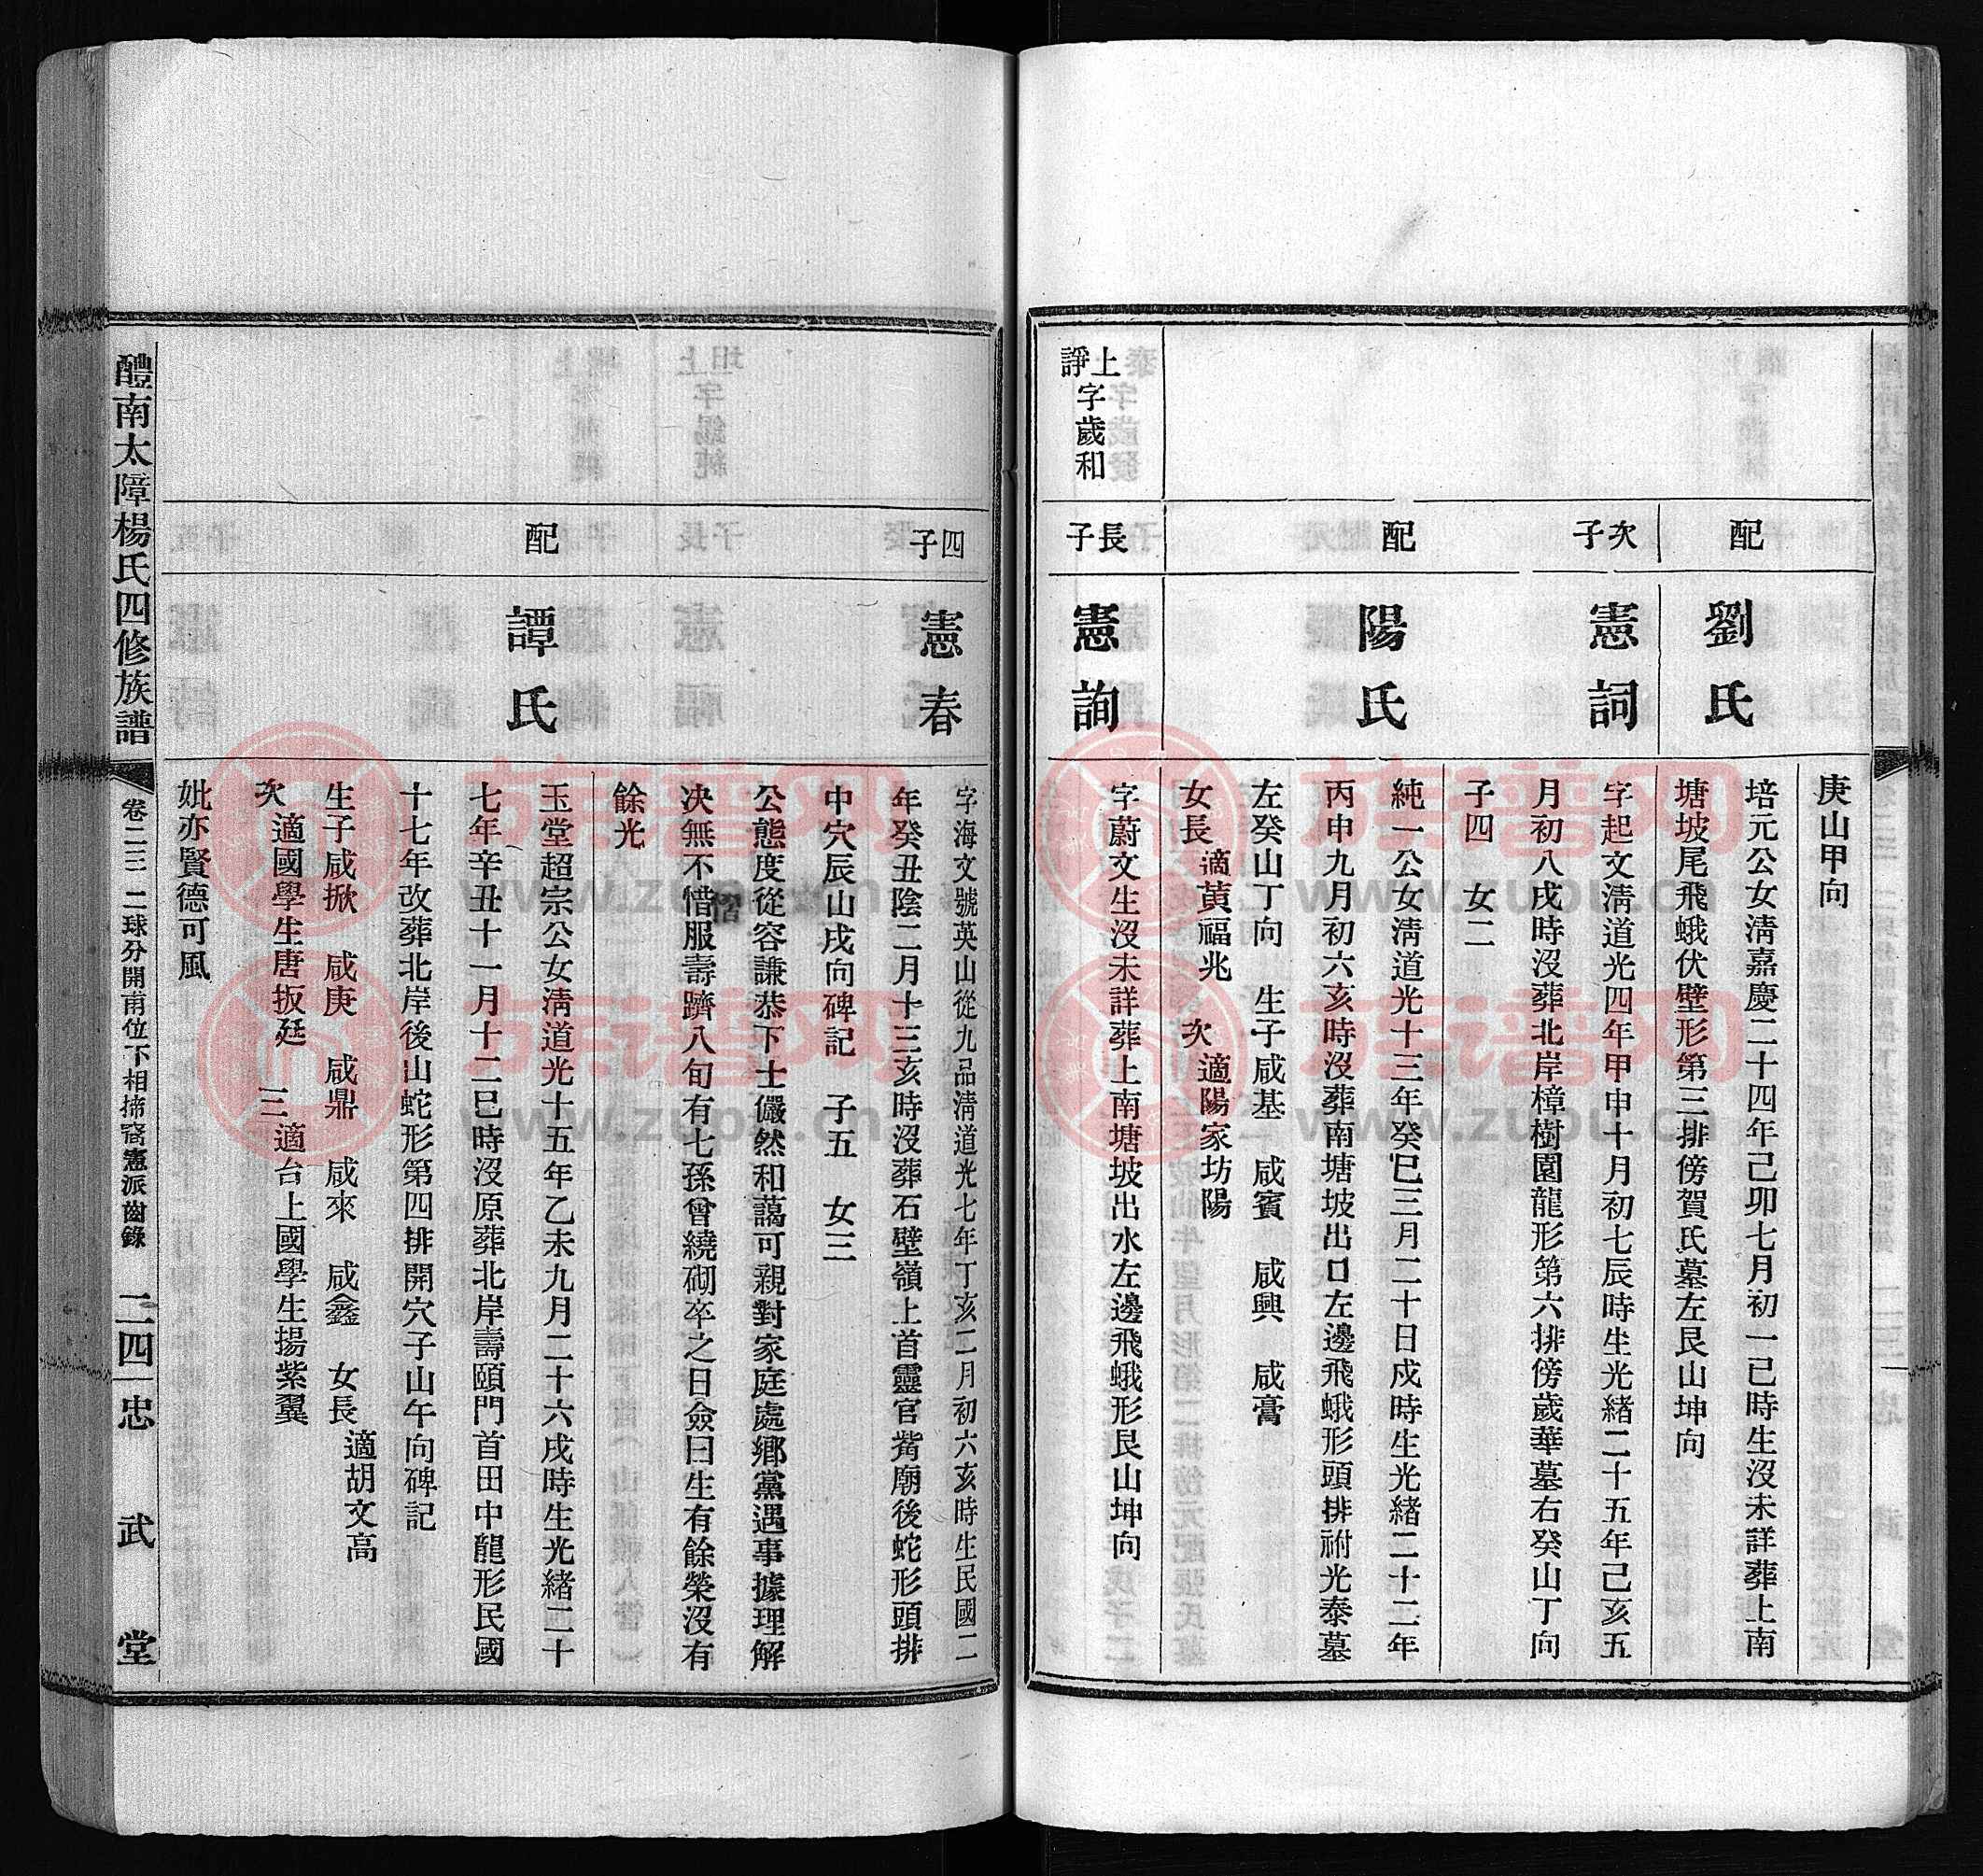 庚山甲向
配
劉氏
培元公女淸嘉慶二十四年己卯七月初一巳時生沒未詳葬上南
塘坡尾飛蛾伏壁形第三排傍賀氏墓左艮山坤向
次子
憲詞
字起文淸道光四年甲申十月初七辰時生光緒二十五年己亥五
月初八戌時沒葬北岸樟樹園龍形第六排傍歲華墓右癸山丁向
子四 女二
配
陽氏
純一公女淸道光十三年癸巳三月二十日戌時生光緒二十二年
丙申九月初六亥時沒葬南塘坡出口左邊飛蛾形頭排祔光泰墓
左癸山丁向 生子咸基 咸賓 咸興 咸膏
女長適黃福兆 次適陽家坊陽
上諍字歲和
長子
憲詢
字蔚文生沒未詳葬上南塘坡出水左邊飛蛾形艮山坤向
四子
憲春
字海文號英山從九品淸道光七年丁亥二月初六亥時生民國二
年癸丑陰二月十三亥時沒葬石壁嶺上首靈官觜廟後蛇形頭排
中穴辰山戌向碑記 子五 女三
公態度從容謙恭下士儼然和藹可親對家庭處鄉黨遇事據理解
决無不慴服壽躋八旬有七孫曾繞砌卒之日僉曰生有餘榮沒有
餘光
配
譚氏
玉堂超宗公女淸道光十五年乙未九月二十六戌時生光緒二十
七年辛丑十一月十二巳時沒原葬北岸壽頤門首田中龍形民國
十七年改葬北岸後山蛇形第四排開穴子山午向碑記
生子咸掀 咸庚 咸鼎 咸來 咸鑫 女長適胡文高
次適國學生唐扳廷 三適台上國學生揚紫翼
妣亦賢德可風
醴南太障楊氏四修族譜
卷二三 二球分開甫位下相揥裔憲派齒錄
二四 忠武堂
www.zupu.cn
族谱网
www.zupu.cn
族谱网
www.zupu.cn
族谱网
www.zupu.cn
族谱网